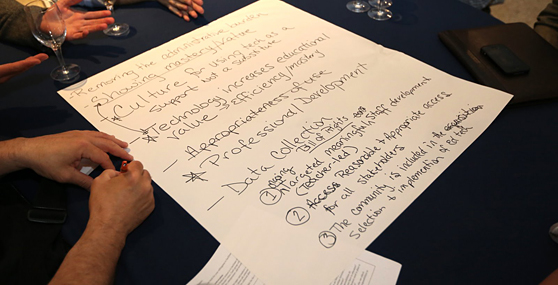 Removing the administrative burden
Showing mastery/value
* Culture of using tech as a
support not a substitute
* Technology increases educational
value & efficiency/mastery
- Appropriateness of use
* Professional Development
- Data Collection
Bill of Rights
① Targeted meaningful staff development
(teacher-led)
② Access Reasonable & Appropriate access
for all stakeholders
③ The community is included in the
selection & implemention of ed tech